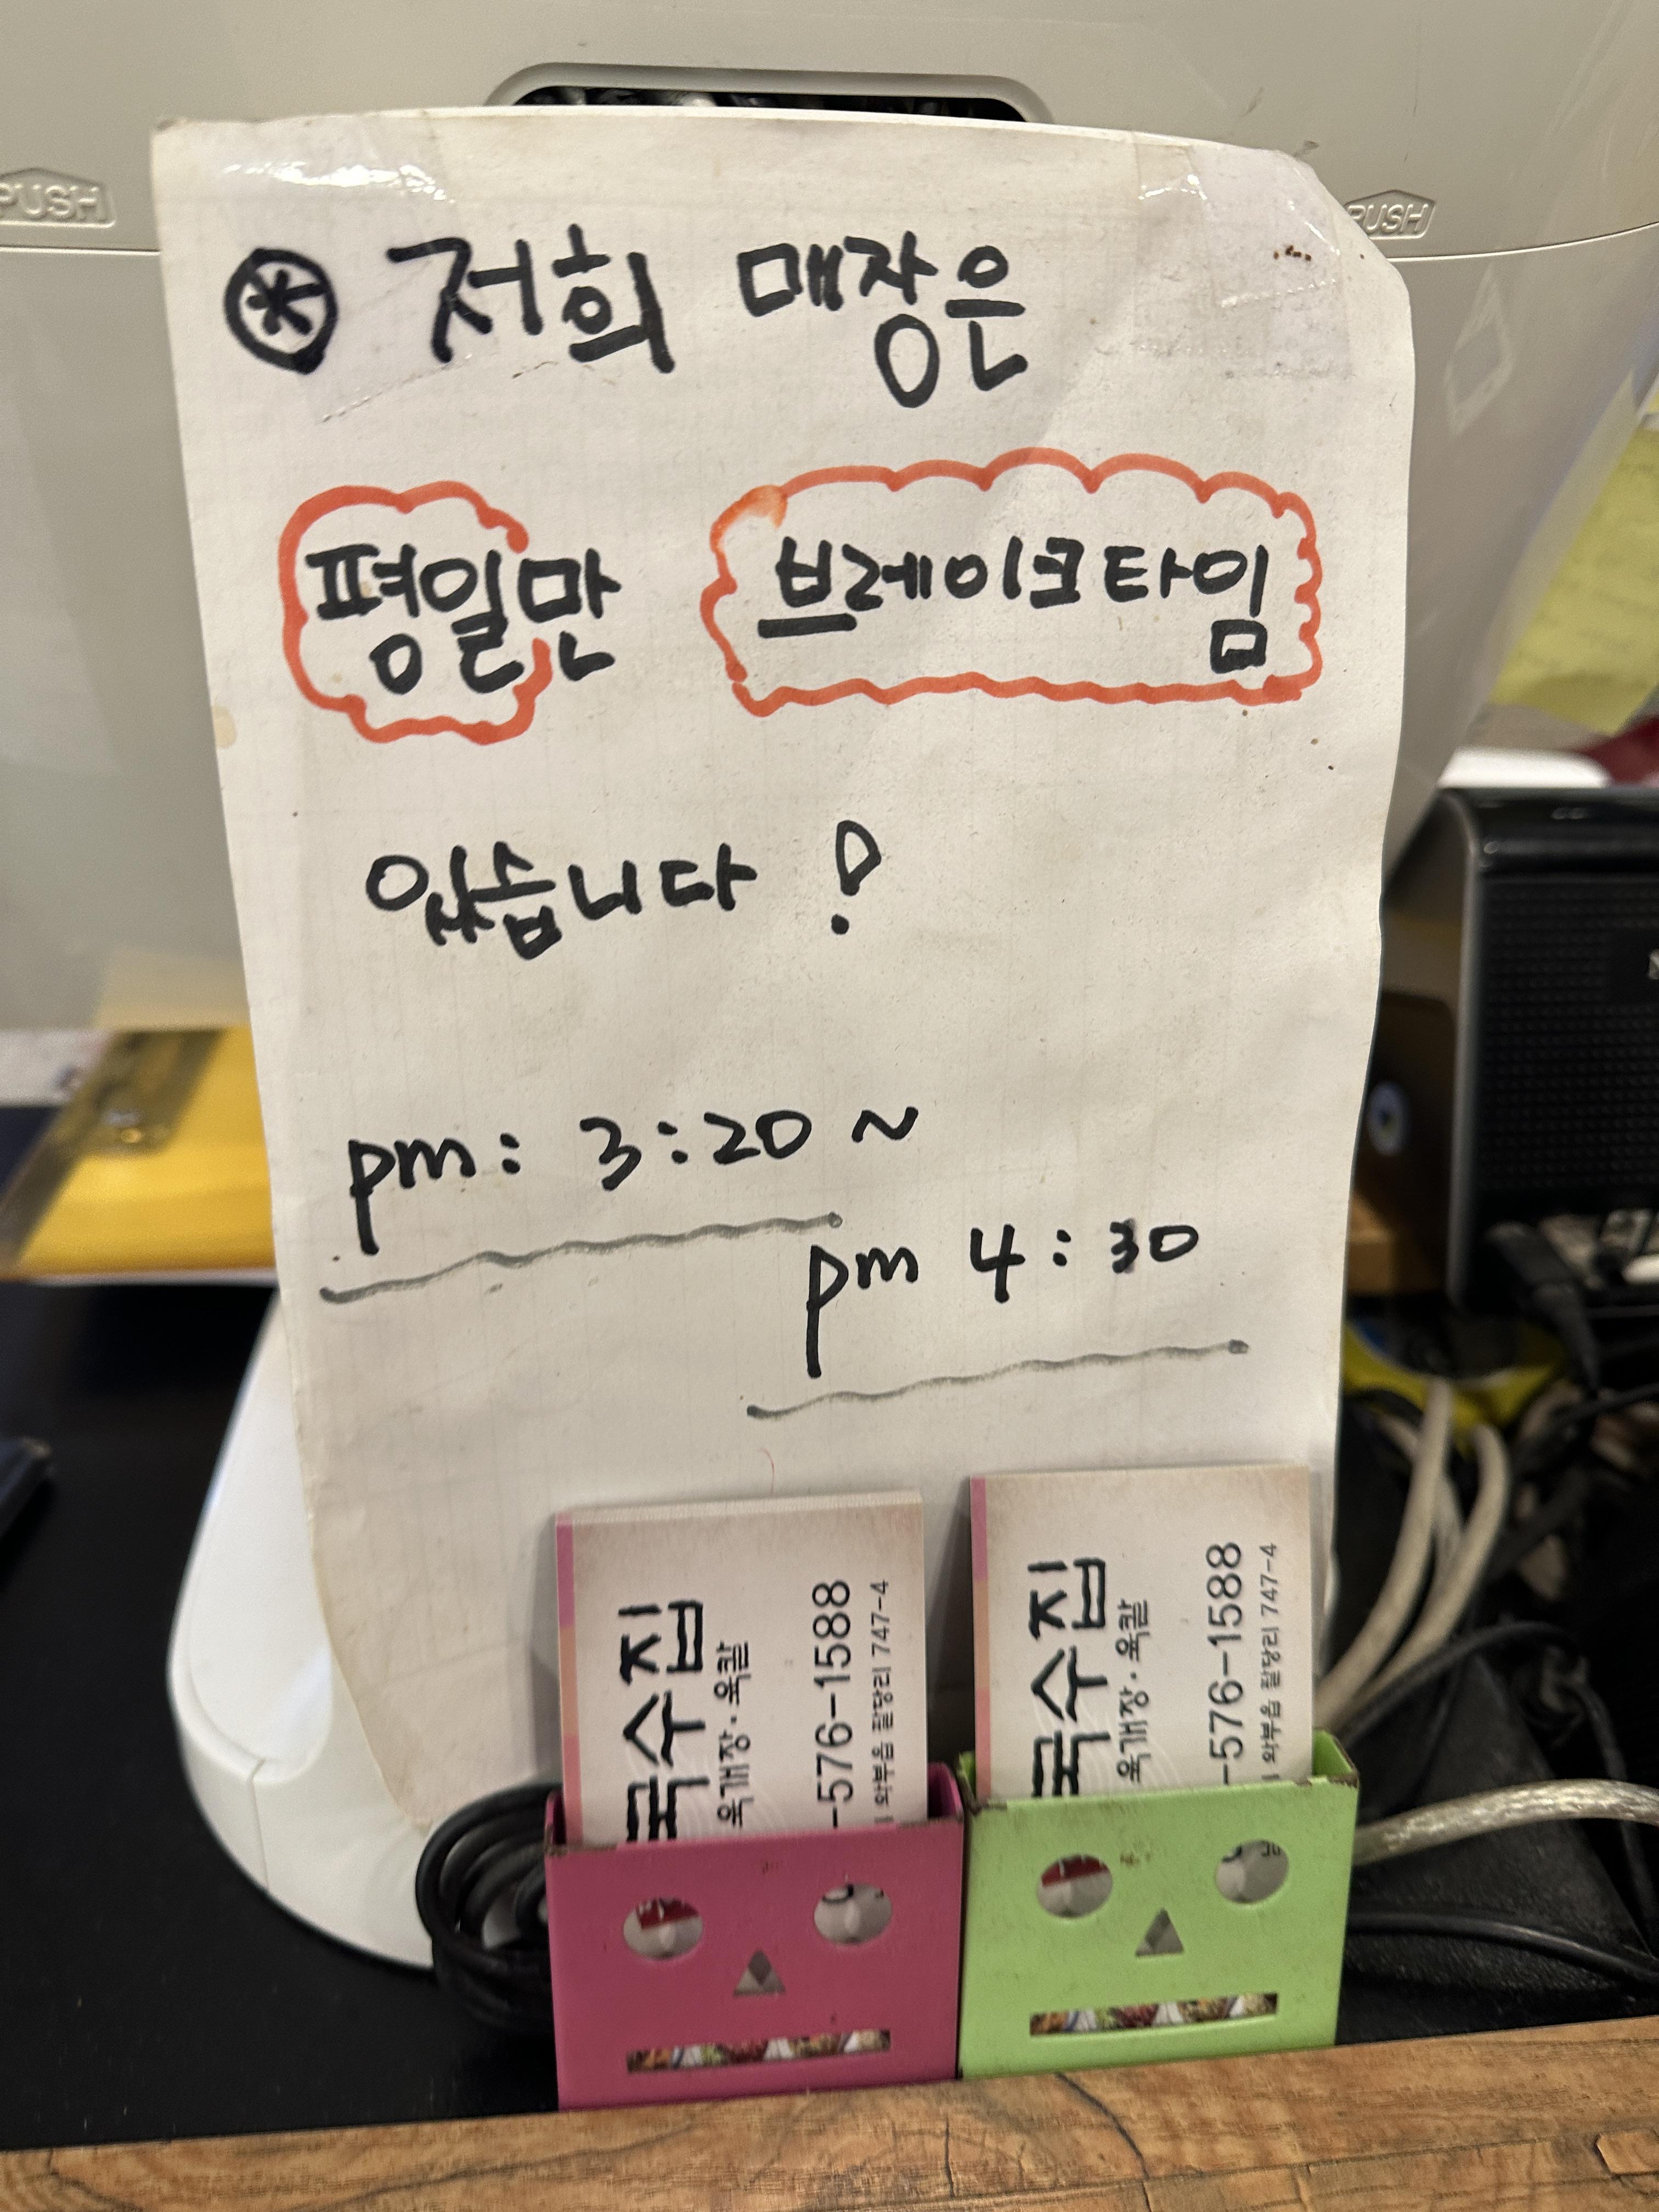 PUSH
PUSH
⊛ 저희 매장은
평일만 브레이크타임
있습니다!
pm: 3:20 ~
pm 4:30
국수집
육개장·육칼
-576-1588
와부읍 팔당리 747-4
국수집
육개장·육칼
-576-1588
와부읍 팔당리 747-4